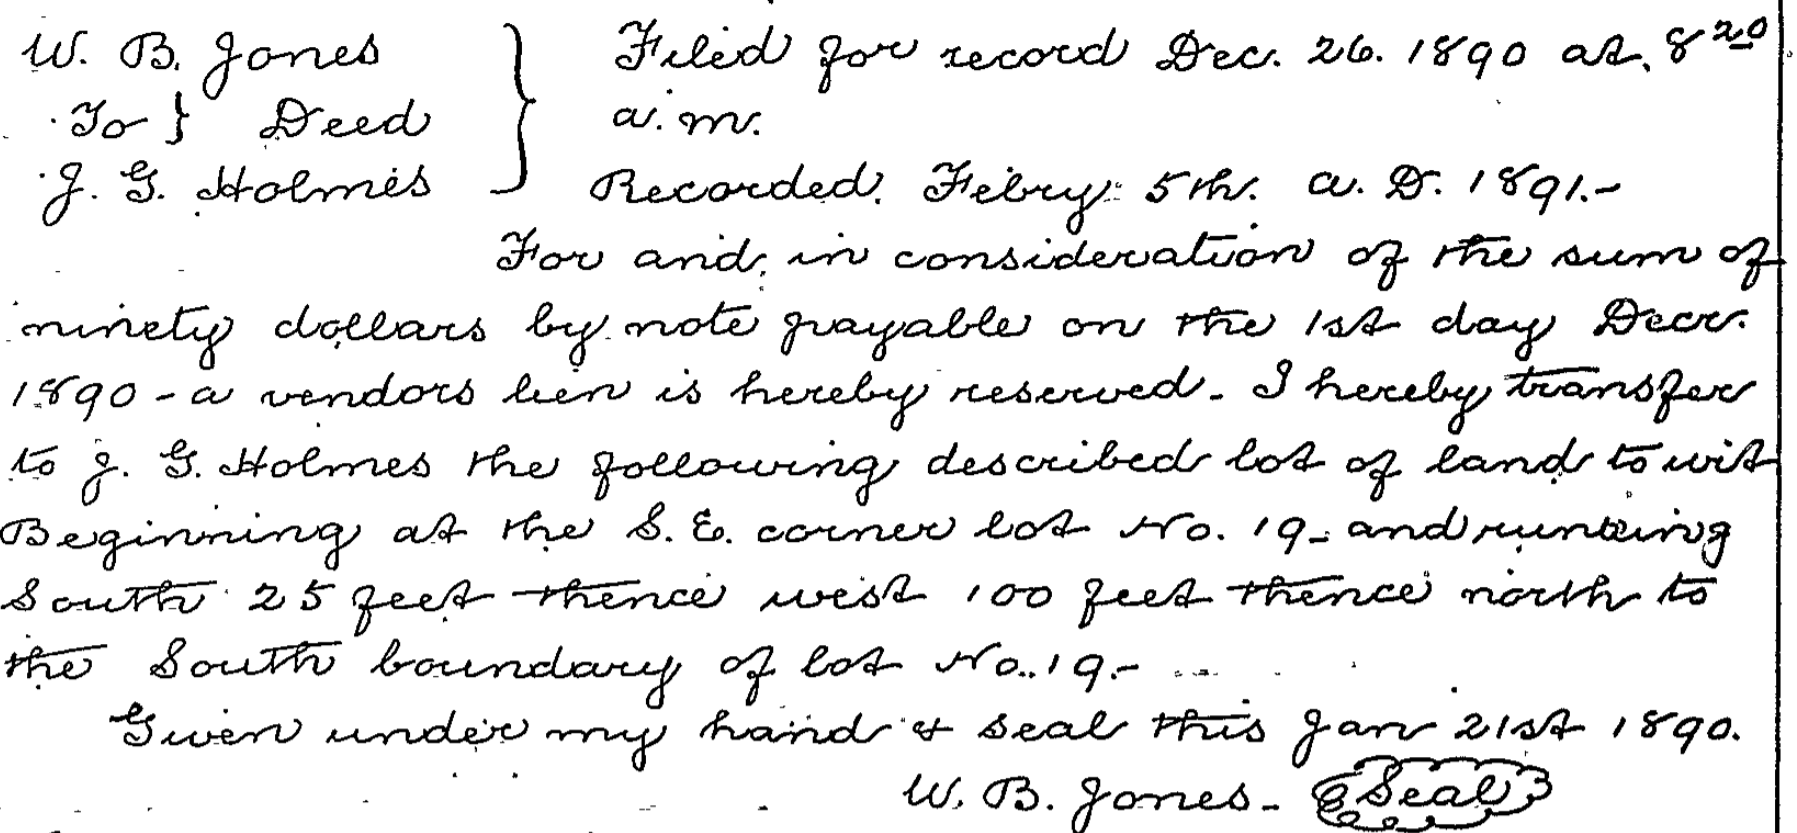 W. B. Jones } Filed for record Dec. 26. 1890 at. 8 20
To } Deed a. m.
J. G. Holmes Recorded. Febry 5th. A. D. 1891.-
For and in consideration of the sum of
ninety dollars by note payable on the 1st day Decr.
1890 - a vendors lien is hereby reserved - I hereby transfer
to J. G. Holmes the following described lot of land to wit
Beginning at the S. E. corner lot No. 19 - and running
South 25 feet thence west 100 feet thence north to
the South boundary of lot No. 19.-
Given under my hand & seal this Jan 21st 1890.
W. B. Jones - Seal